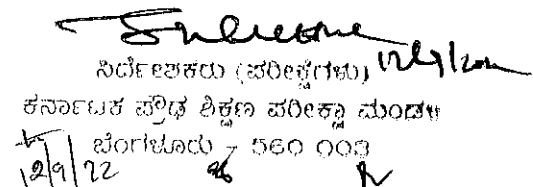 ನಿರ್ದೇಶಕರು (ಪರೀಕ್ಷೆಗಳು)
ಕರ್ನಾಟಕ ಪ್ರೌಢ ಶಿಕ್ಷಣ ಪರೀಕ್ಷಾ ಮಂಡಳಿ
ಬೆಂಗಳೂರು - 560 003
12/9/22